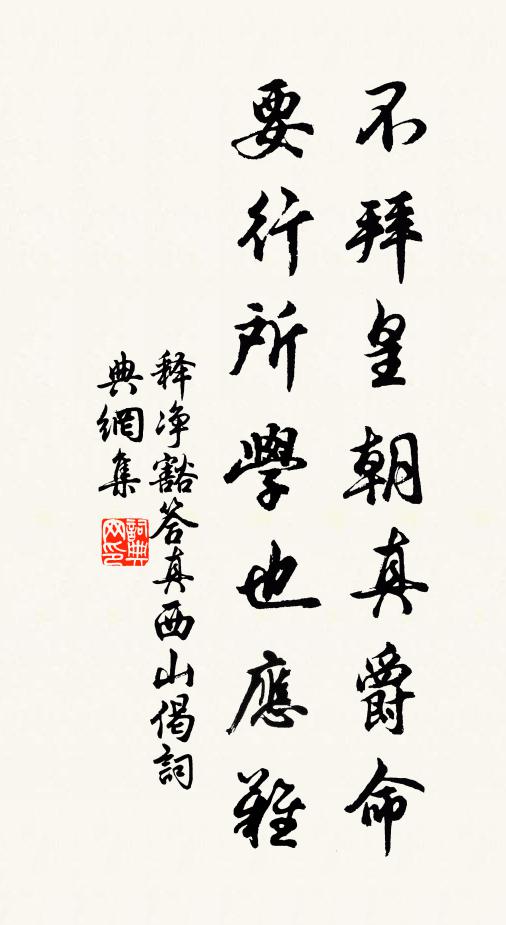 不拜皇朝真爵命
要行所學也應難
释净豁答真西山偈詞
典網集
詞典
网印